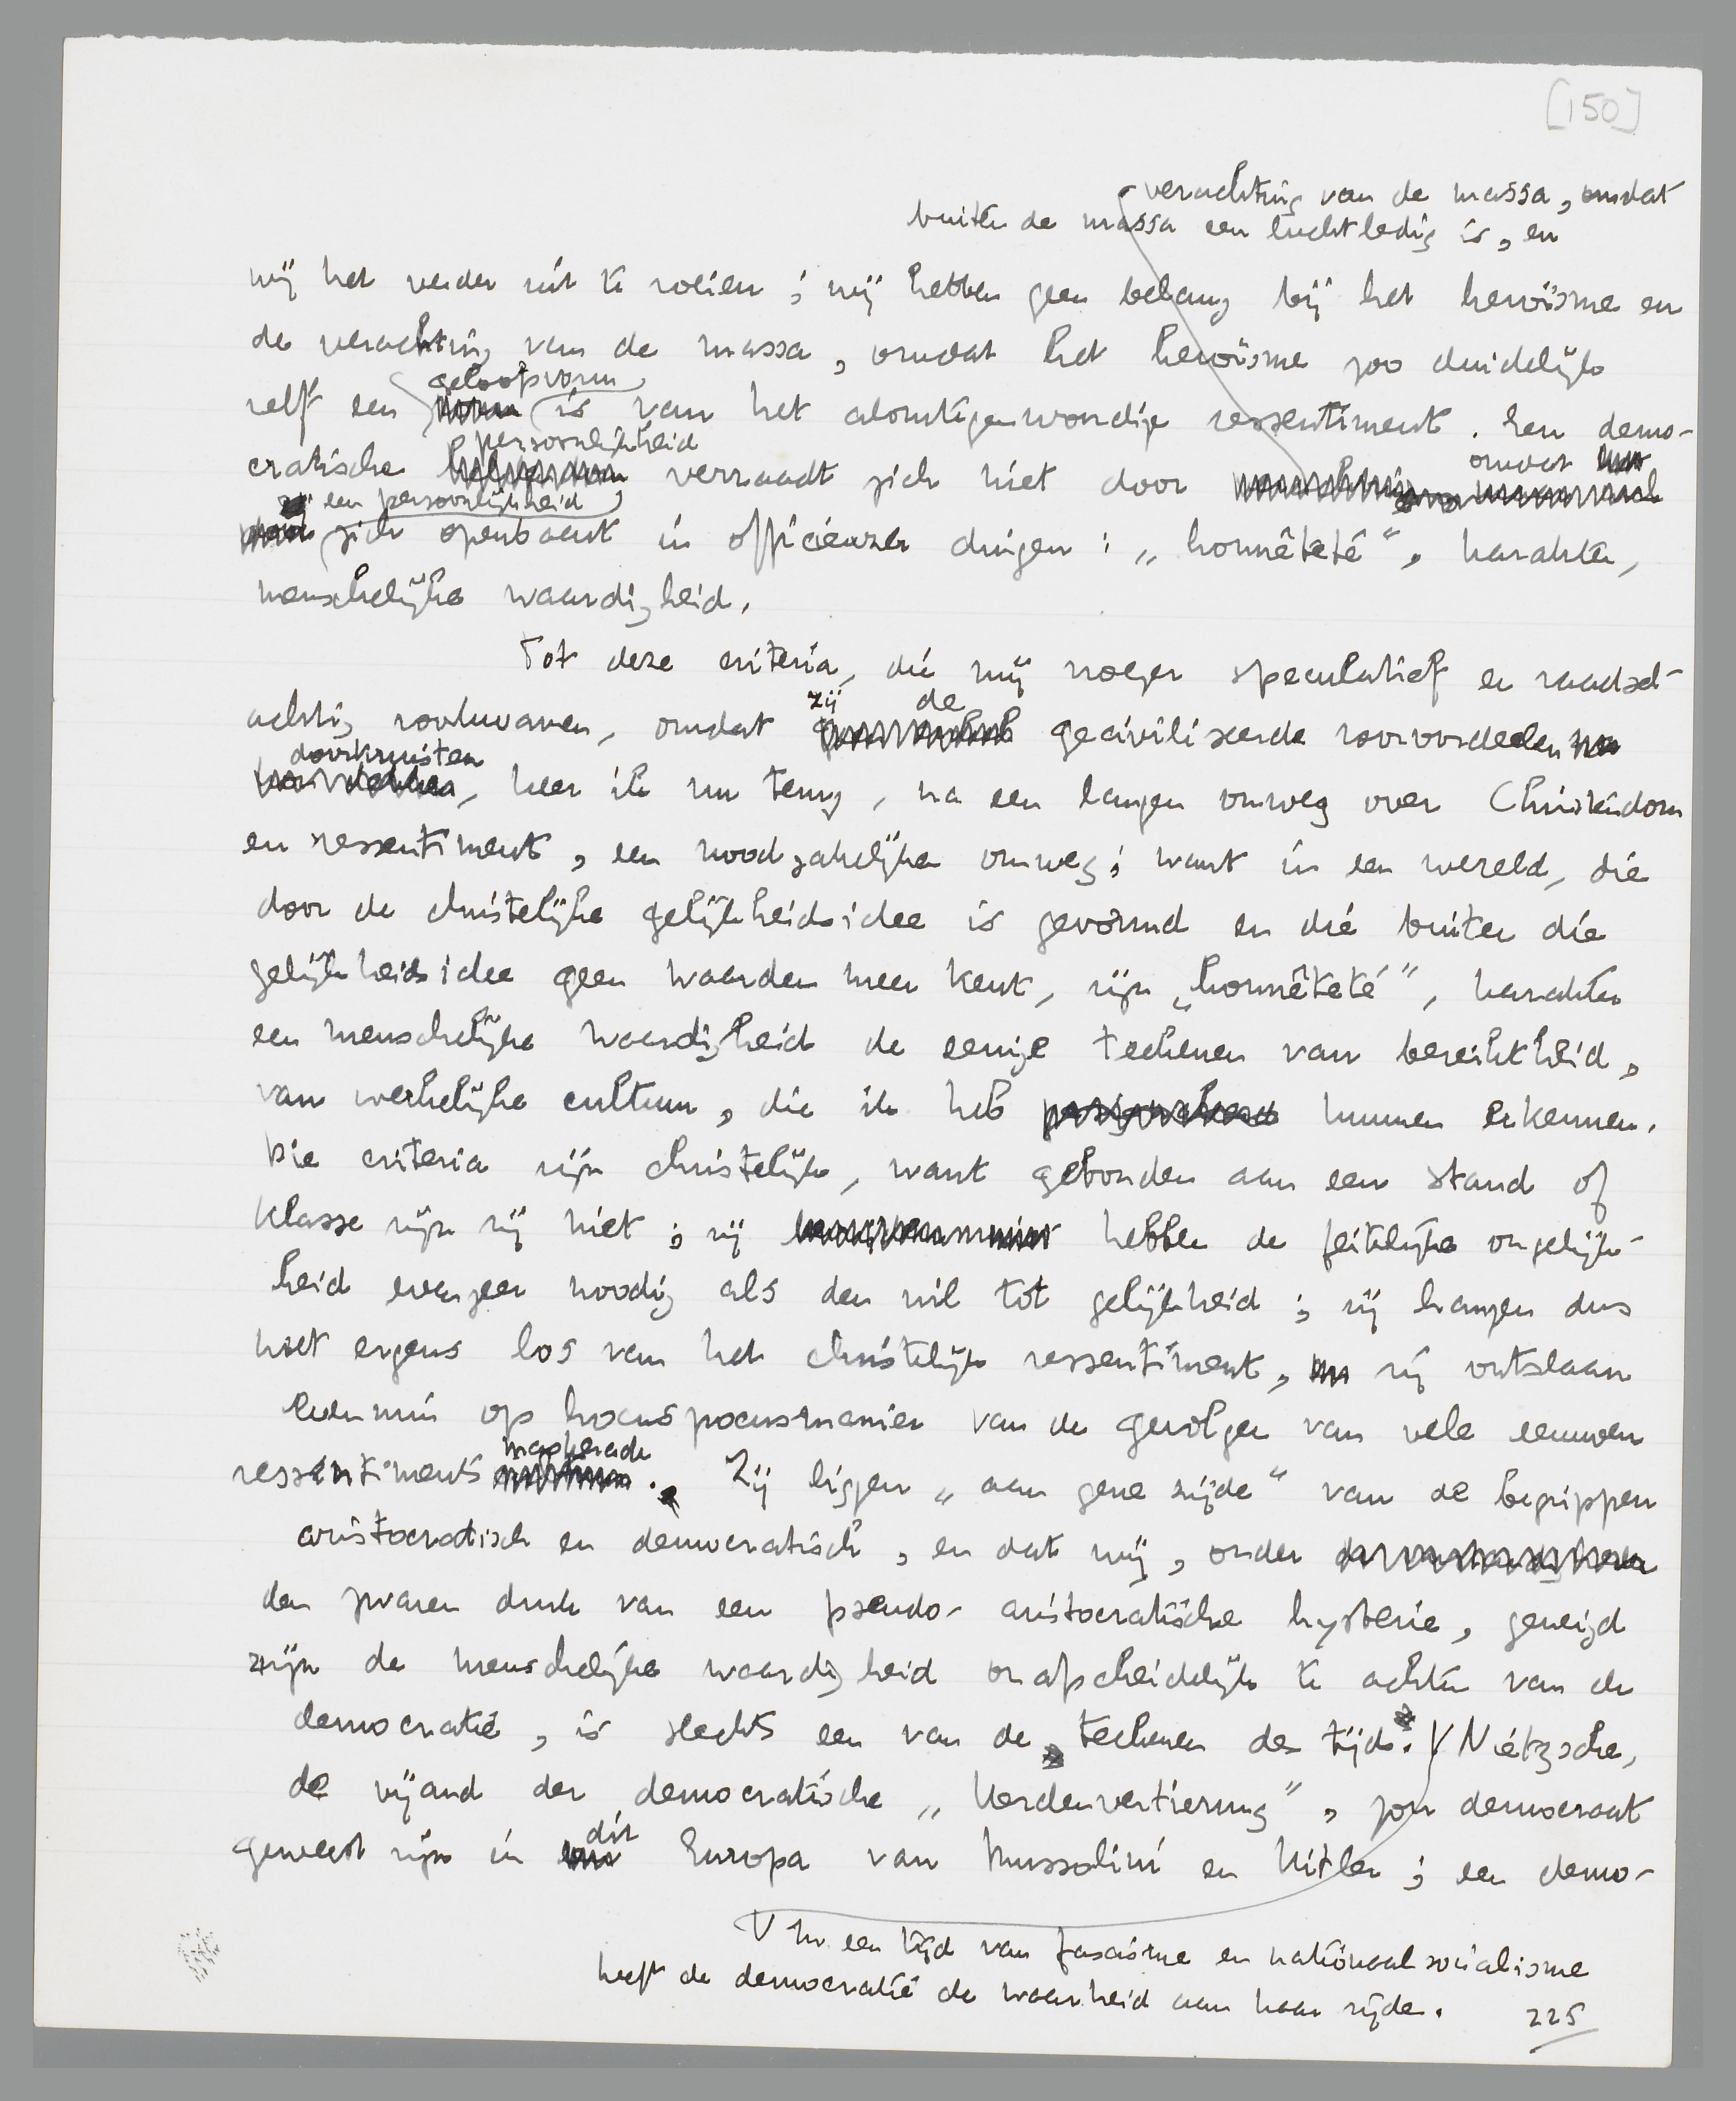 [150]
verachting van de massa, omdat
buiten de massa een luchtledig is, en
wij het verder uit te roeien; wij hebben geen belang bij het heroïsme en
de verachting van de massa, omdat het heroïsme zoo duidelijk
geloofsvorm
zelf een is van het alomtegenwoordige ressentiment. Een demo-
persoonlijkheid
cratische verraadt zich niet door omdat
zij een persoonlijkheid
zich openbaart in officieuzer dingen: „honnêteté”, karakter,
menschelijke waardigheid.
Tot deze criteria, die mij vroeger speculatief en raadsel-
zij de
achtig voorkwamen, omdat geciviliseerde vooroordeelen
doorkruisten
, keer ik nu terug, na een langen omweg over Christendom
en ressentiment, een noodzakelijken omweg; want in een wereld, die
door de christelijke gelijkheidsidee is gevormd en die buiten die
gelijkheidsidee geen waarden meer kent, zijn „honnêteté”, karakter
en menschelijke waardigheid de eenige teekenen van bereiktheid,
van werkelijke cultuur, die ik heb kunnen erkennen.
Die criteria zijn christelijk, want gebonden aan een stand of
klasse zijn zij niet; zij hebben de feitelijke ongelijk-
heid evenzeer noodig als den wil tot gelijkheid; zij hangen dus
niet ergens los van het christelijk ressentiment, zij ontslaan
evenmin op hocuspocusmanier van de gevolgen van vele eeuwen
maskerade
ressentiments . Zij liggen „aan gene zijde” van de begrippen
aristocratisch en democratisch, en dat wij, onder
den zwaren druk van een pseudo-aristocratische hysterie, geneigd
zijn de menschelijke waardigheid onafscheidelijk te achten van de
democratie, is slechts een van de teekenen des tijds. V Nietzsche,
de vijand der democratische „Herdenvertierung”, zou democraat
dit
geweest zijn in Europa van Mussolini en Hitler; een demo-
V In een tijd van fascisme en nationaalsocialisme
heeft de democratie de waarheid aan haar zijde.
225